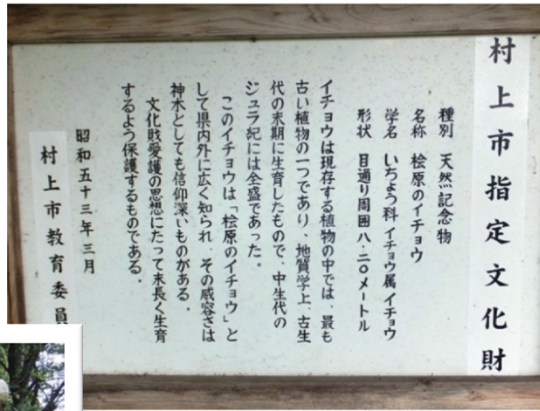 村上市指定文化財
種別 天然記念物
名称 桧原のイチョウ
学名 いちょう科イチョウ属イチョウ
形状 目通り周囲八・二〇メートル
イチョウは現存する植物の中では、最も
古い植物の一つであり、地質学上、古生
代の末期に生育したもので、中生代の
ジュラ紀には全盛であった。
このイチョウは「桧原のイチョウ」と
して県内外に広く知られ、その威容さは
神木としても信仰深いものがある。
文化財愛護の思想にたって末長く生育
するよう保護するものである。
昭和五十三年三月
村上市教育委員